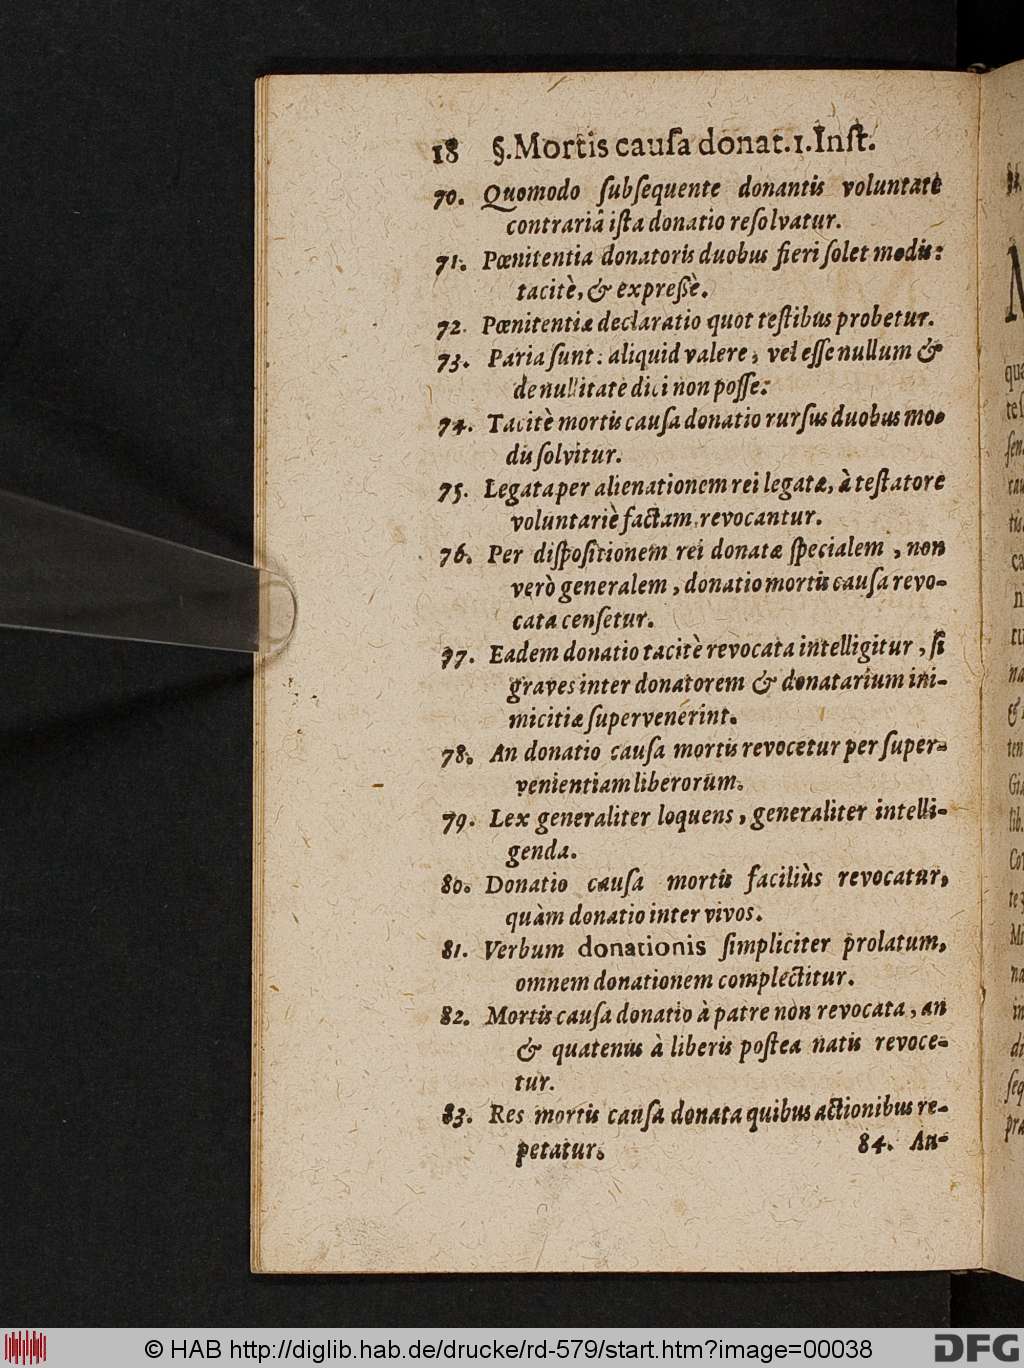 18 §. Mortis cauſa donat. 1. Inſt.
70. Quomodo ſubſequente donantis voluntate
contrariâ iſta donatio reſolvatur.
71. Pœnitentia donatoris duobus fieri ſolet modis:
tacitè, & expreßè.
72. Pœnitentiæ declaratio quot teſtibus probetur.
73. Paria ſunt: aliquid valere, vel eſſe nullum &
de nullitate dici non poſſe.
74. Tacitè mortis cauſa donatio rurſus duobus mo-
dis ſolvitur.
75. Legata per alienationem rei legatæ, à teſtatore
voluntariè factam, revocantur.
76. Per diſpoſitionem rei donatæ ſpecialem, non
verò generalem, donatio mortis cauſa revo-
cata cenſetur.
77. Eadem donatio tacitè revocata intelligitur, ſi
graves inter donatorem & donatarium ini-
micitiæ ſupervenerint.
78. An donatio cauſa mortis revocetur per ſuper-
venientiam liberorum.
79. Lex generaliter loquens, generaliter intelli-
genda.
80. Donatio cauſa mortis faciliùs revocatur,
quàm donatio inter vivos.
81. Verbum donationis ſimpliciter prolatum,
omnem donationem complectitur.
82. Mortis cauſa donatio à patre non revocata, an
& quatenus à liberis poſtea natis revoce-
tur.
83. Res mortis cauſa donata quibus actionibus re-
petatur.
84. An-
© HAB http://diglib.hab.de/drucke/rd-579/start.htm?image=00038
DFG